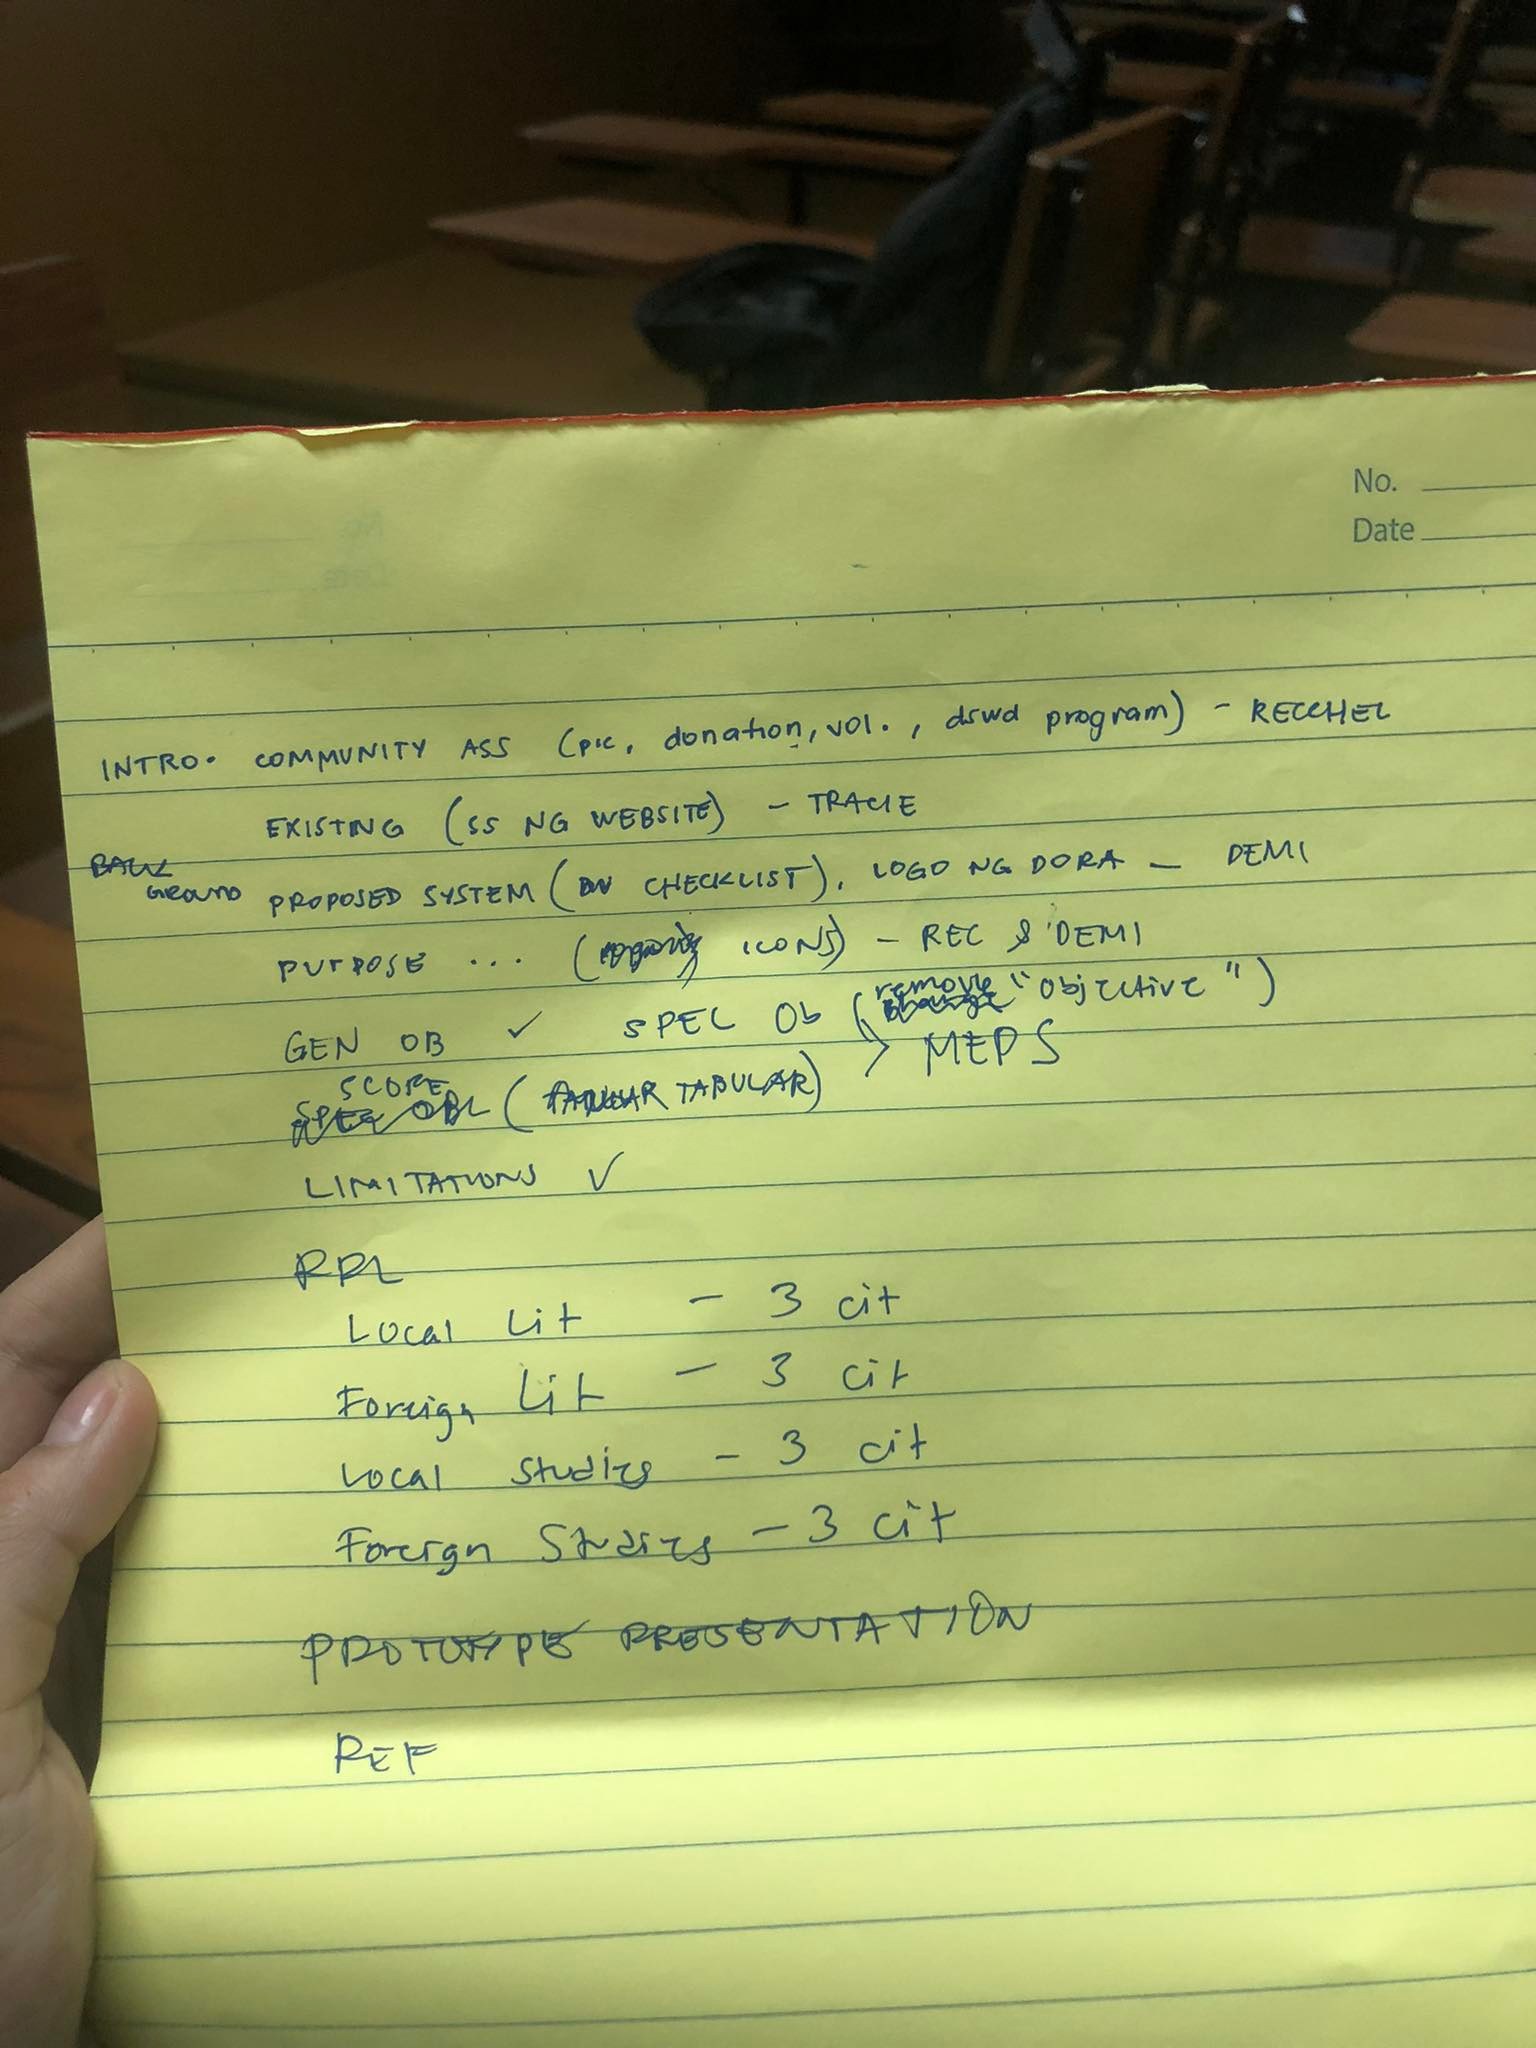 No.
Date
INTRO. COMMUNITY ASS (pic, donation, vol., dswd program) - RECCHEL
EXISTING (SS NG WEBSITE) - TRACIE
BACK GROUND
PROPOSED SYSTEM (CHECKLIST), LOGO NG DORA - DEMI
PURPOSE ... (ICONS) - REC & DEMI
GEN OB ✓ SPEC Ob (remove "Objective")
SCOPE (TABULAR) > MEPS
LIMITATIONS ✓
RRL
Local Lit - 3 cit
Foreign Lit - 3 cit
Local Studies - 3 cit
Foreign Studies - 3 cit
PROTOTYPE PRESENTATION
REF